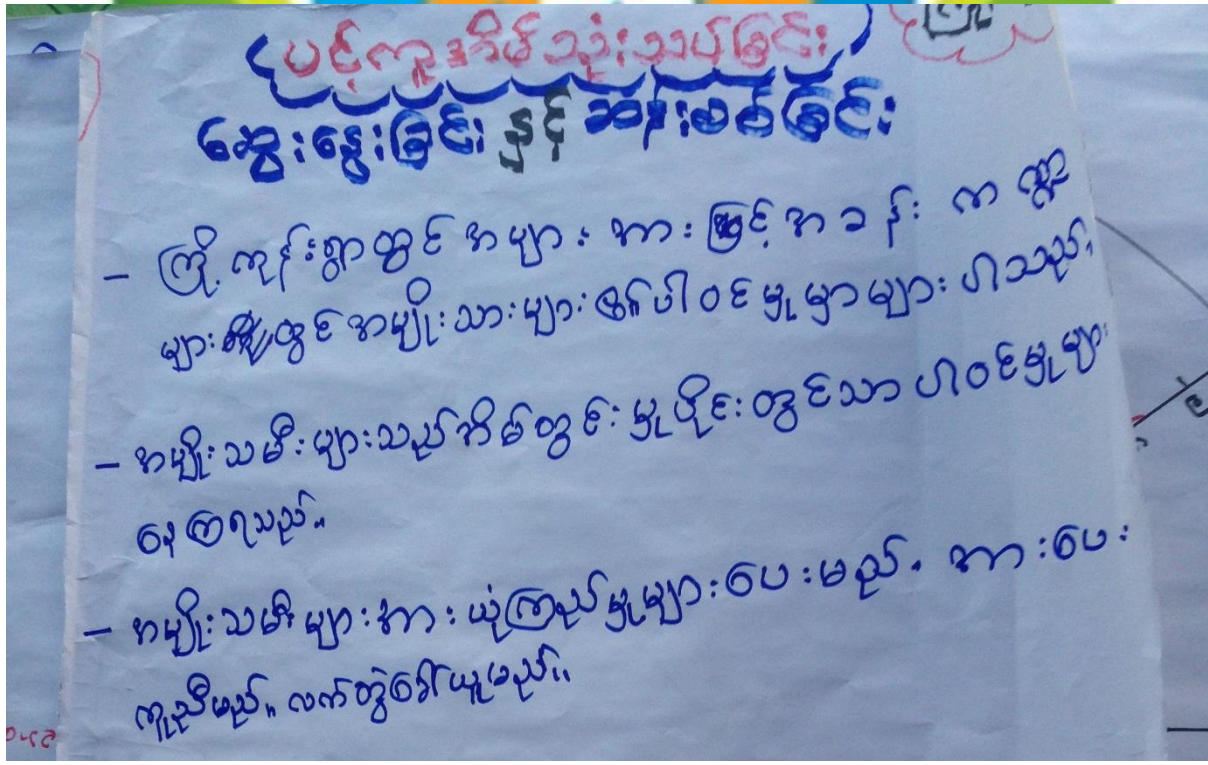 ပင့်ကူအိမ်သုံးသပ်ခြင်း
ဆွေးနွေးခြင်း နှင့် ဆန်းစစ်ခြင်း
- ကြို့ကုန်းရွာတွင် အများအားဖြင့် အခန်းကဏ္ဍ
များတွင် အမျိုးသားများ ပါဝင်မှုမှာများပါသည်။
- အမျိုးသမီးများသည် အိမ်တွင်းမှုပိုင်းတွင်သာ ပါဝင်မှုများ
နေကြရသည်။
- အမျိုးသမီးများအား ယုံကြည်မှုများပေးမည်။ အားပေး
ကူညီမည်။ လက်တွဲခေါ်ယူမည်။